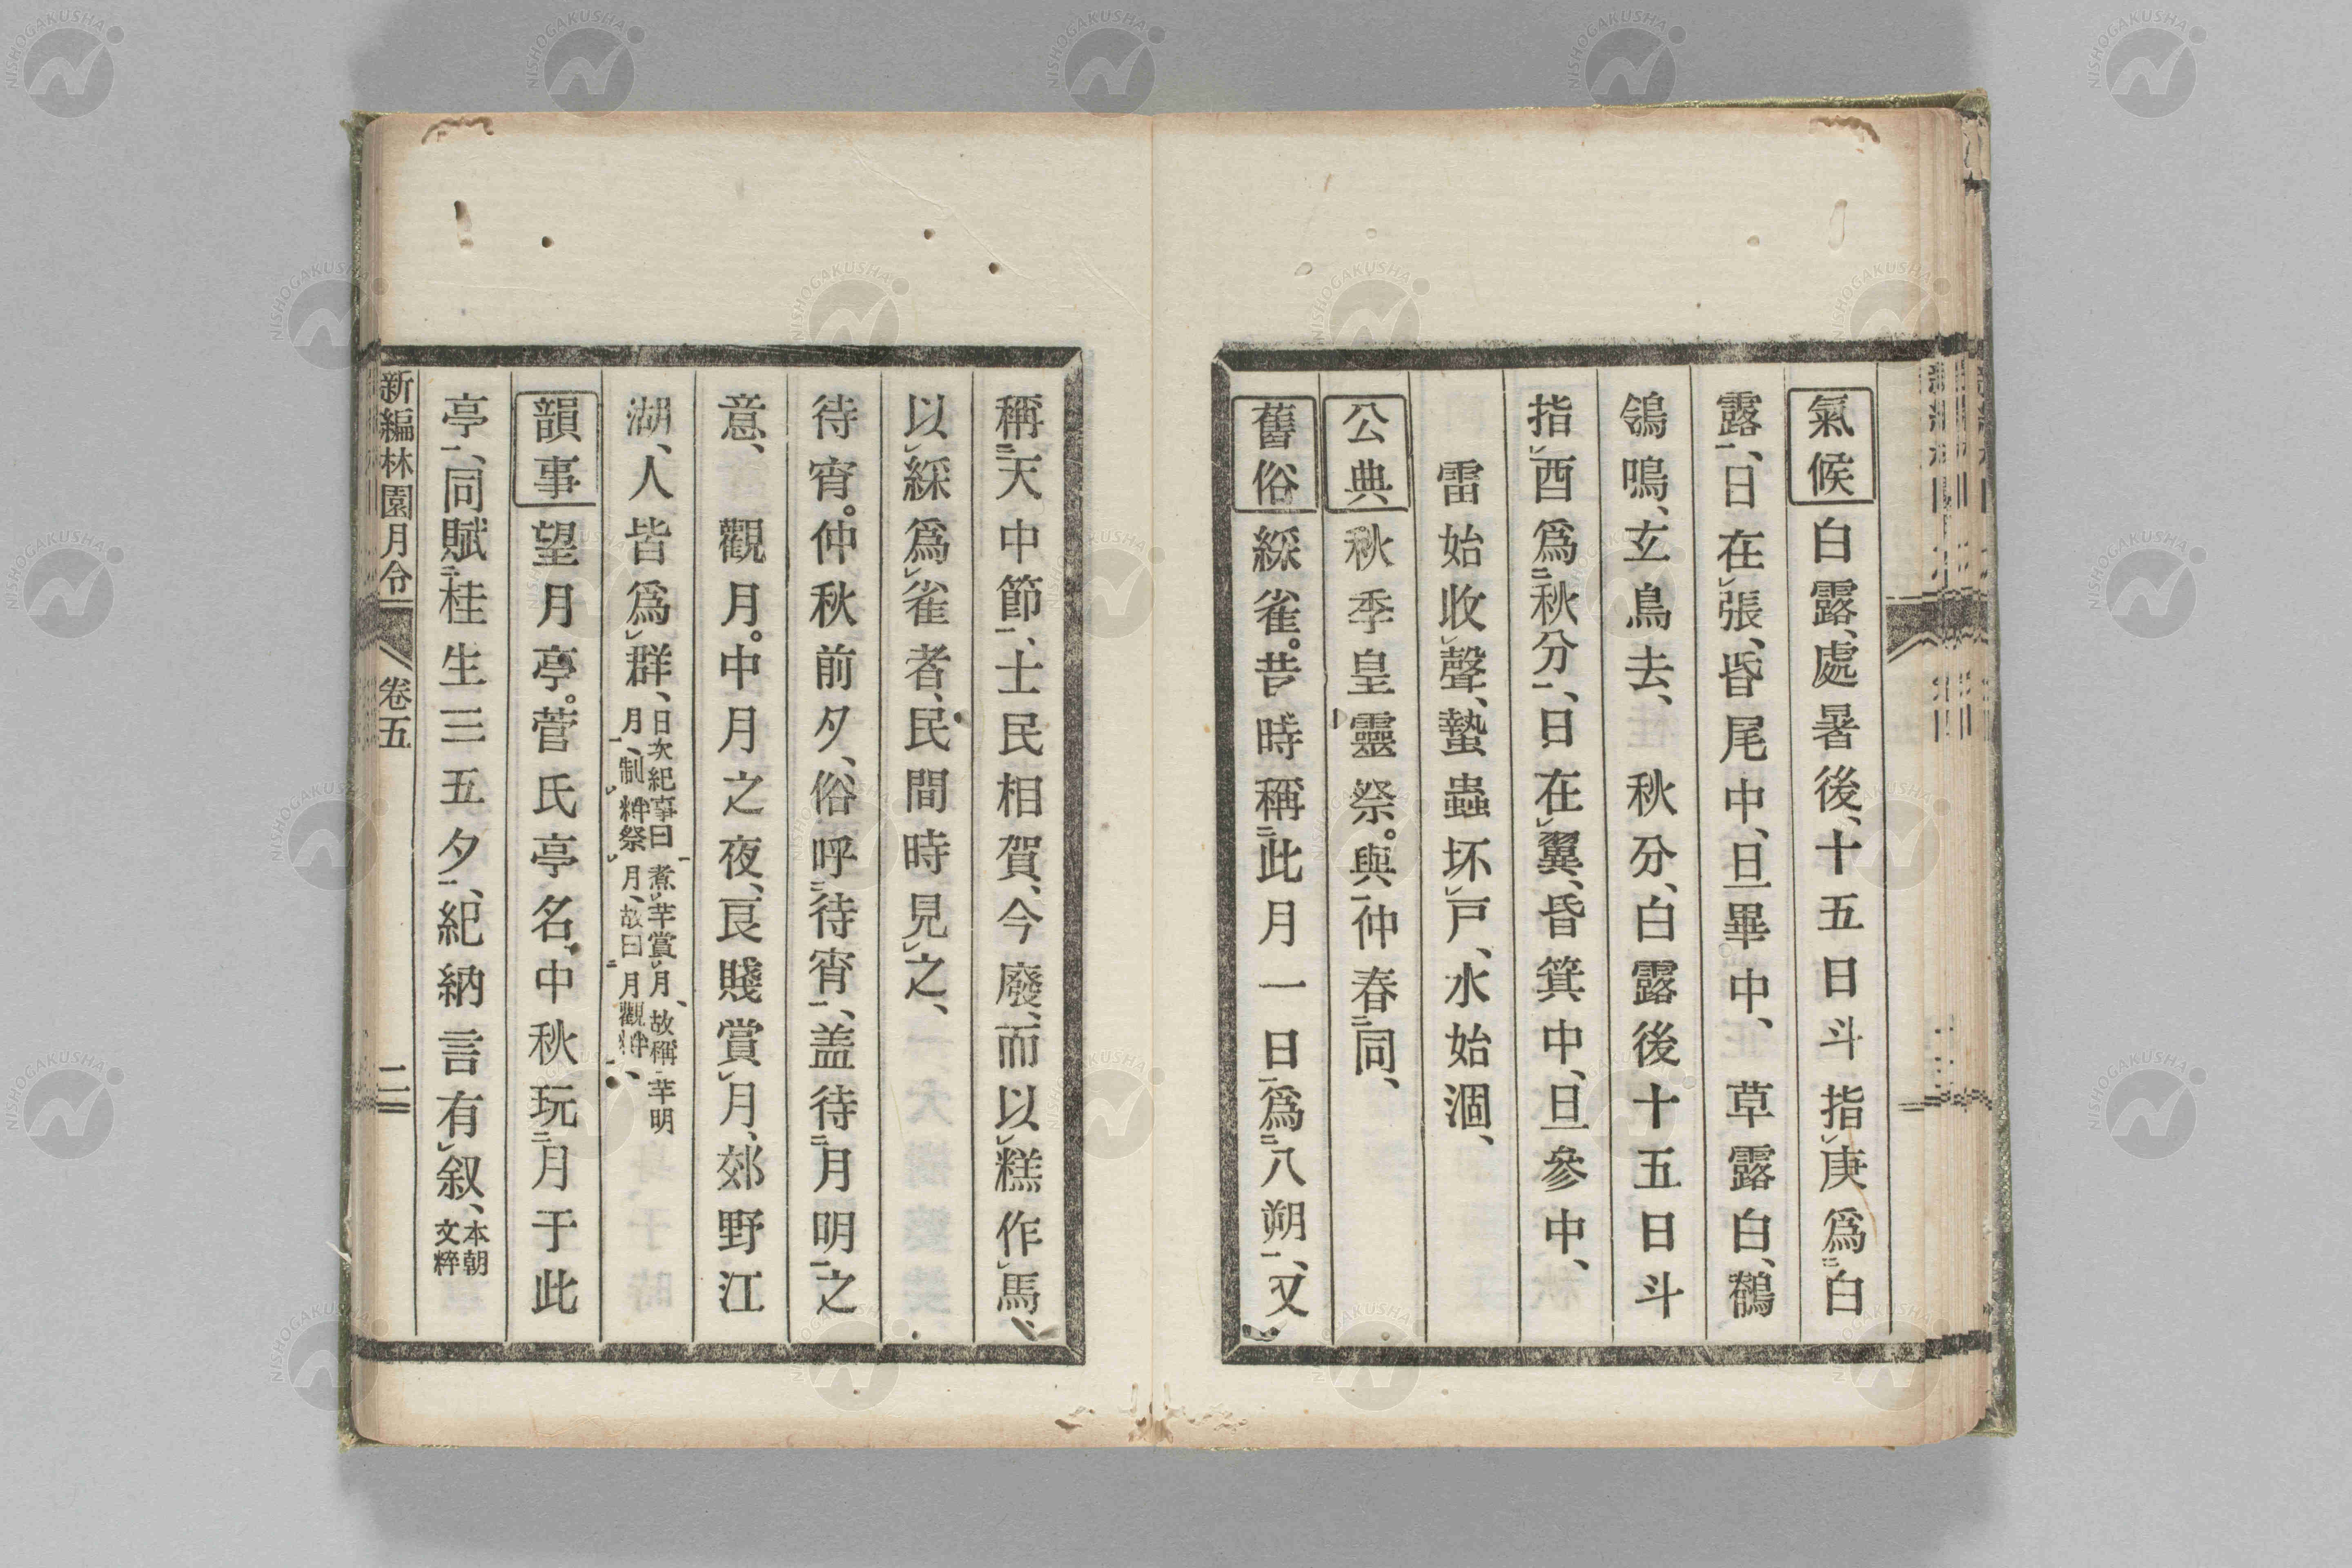 氣候 白露、處暑後、十五日斗指㆑庚爲㆓白
露㆒、日在㆑張、昏尾中、旦畢中、 草露白、鶺
鴒鳴、玄鳥。去、 秋分、白露後十五日斗
指㆑酉爲㆓秋分㆒、日在㆑翼、昏箕中、旦參中、
雷始收㆑聲、蟄蟲坏㆑戸、水始涸、
公典 秋季皇靈祭。與㆓仲春㆒同、
舊俗 綵雀。昔時稱㆓此月一日㆒爲㆓八朔㆒、又
稱㆓天中節㆒、士民相賀、今廢、而以㆑糕作㆑馬、
以㆑綵爲㆑雀者、民間時見㆑之、
待宵。仲秋前夕、俗呼㆓待宵㆒、盖待㆓月明㆒之
意、 觀月。中月之夜、良賤賞㆑月、郊野江
湖、人皆爲㆑群、日次紀事曰煮㆑芋賞㆑月、故稱芋明
月㆒、制㆑粺祭㆑月、故曰㆓月觀粺㆒、
韻事 望月亭。菅氏亭名、中秋玩㆓月于此
亭㆒、同賦㆓桂生三五夕㆒、紀納言有㆑叙、本朝
文粹
新編林園月令 卷五 二
NISHOGAKUSHA